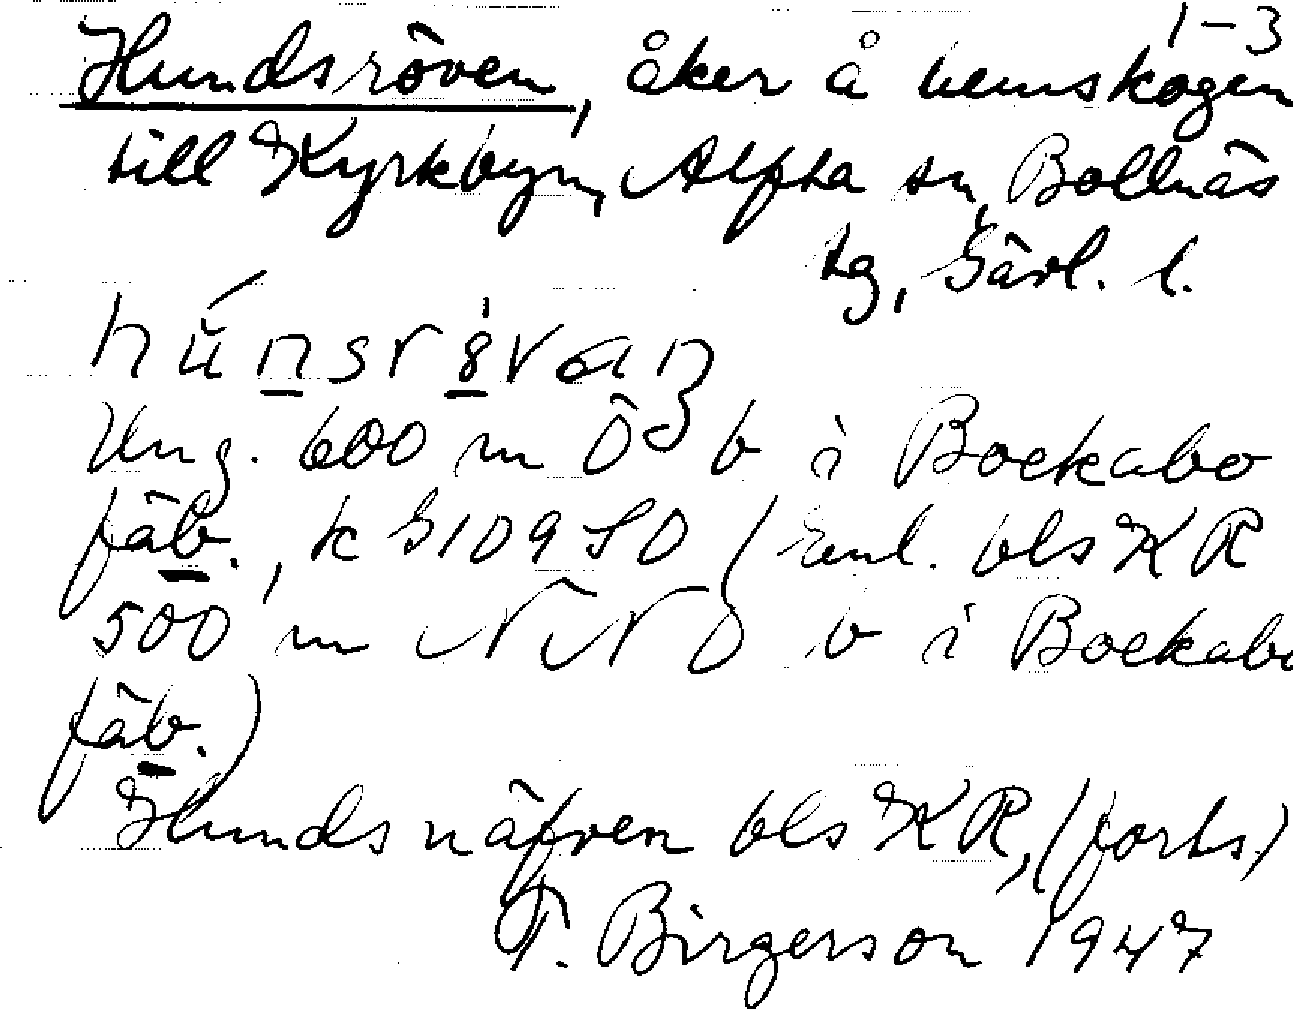 1-3
Hundsröven, åker å hemskogen
till Kyrkbyn, Alfta sn, Bollnäs
tg, Gävl. l.
Ung. 600 m Ö b i Bockabo
fäb., k G109SO (Enl. bls KR
500 m NNO b i Bockabo
fäb.)
Hundsnäfven bls KR, (forts.)
T. Birgerson 1947